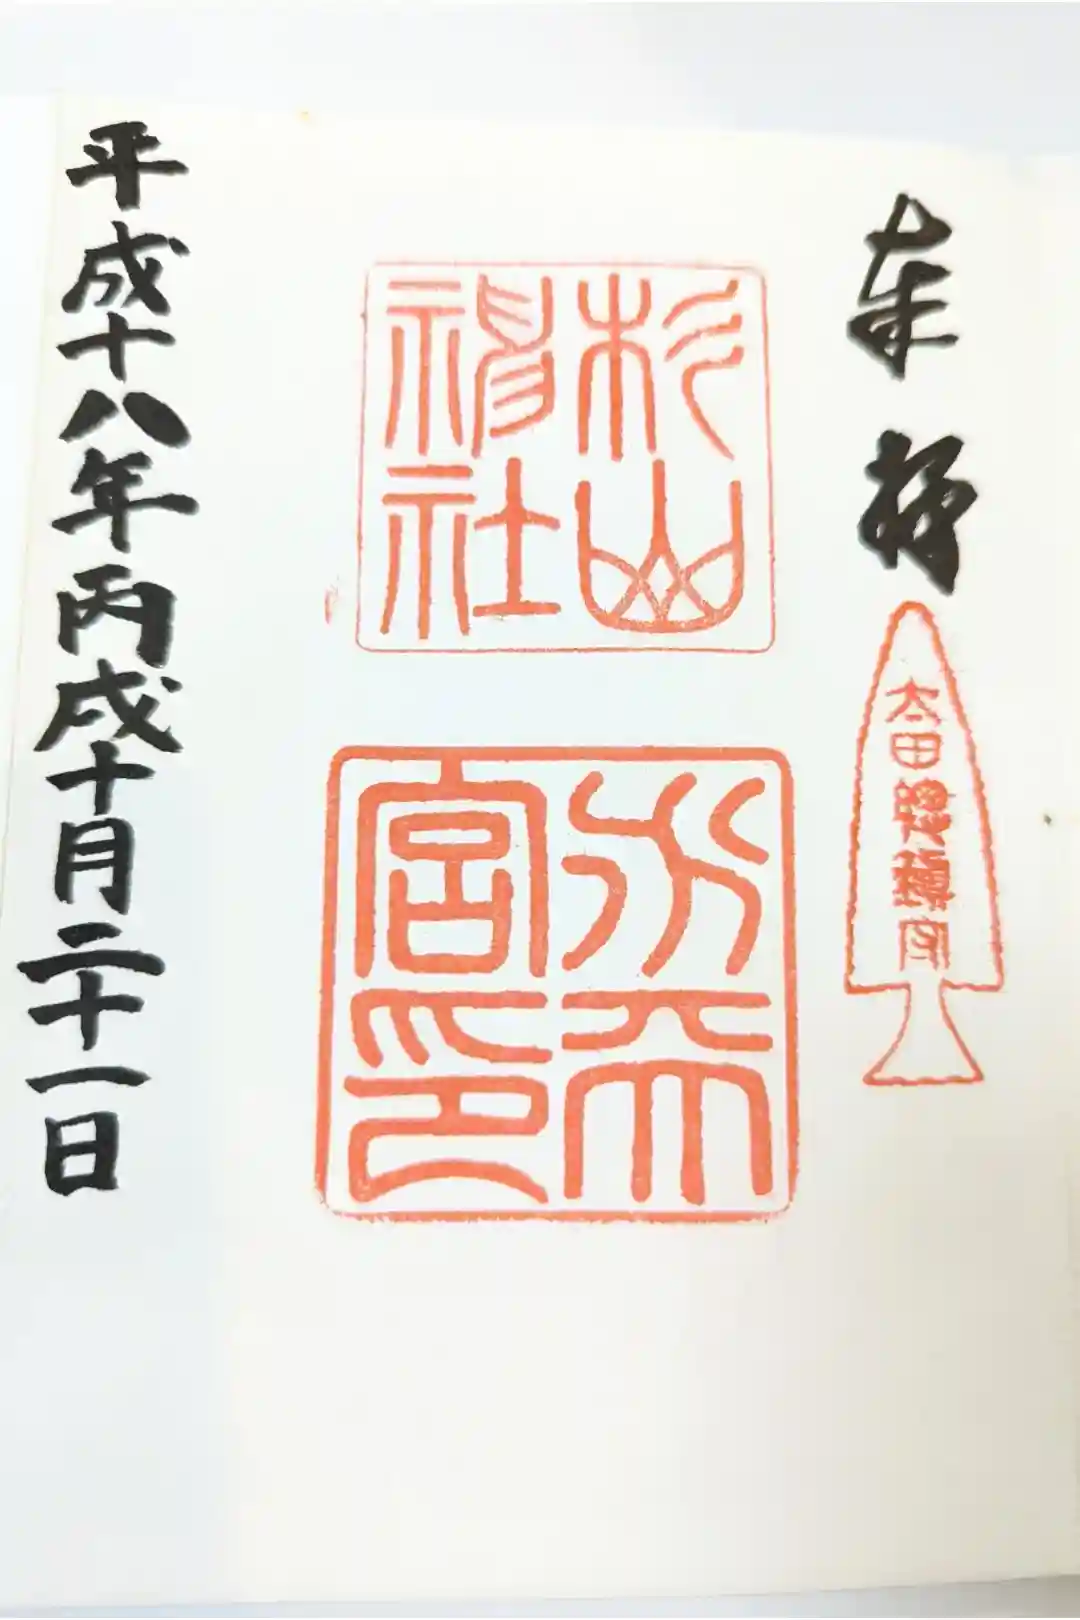 奉拝
太田總鎮守
杉山
禓社
水天
宮印
平成十八年丙戌十月二十一日